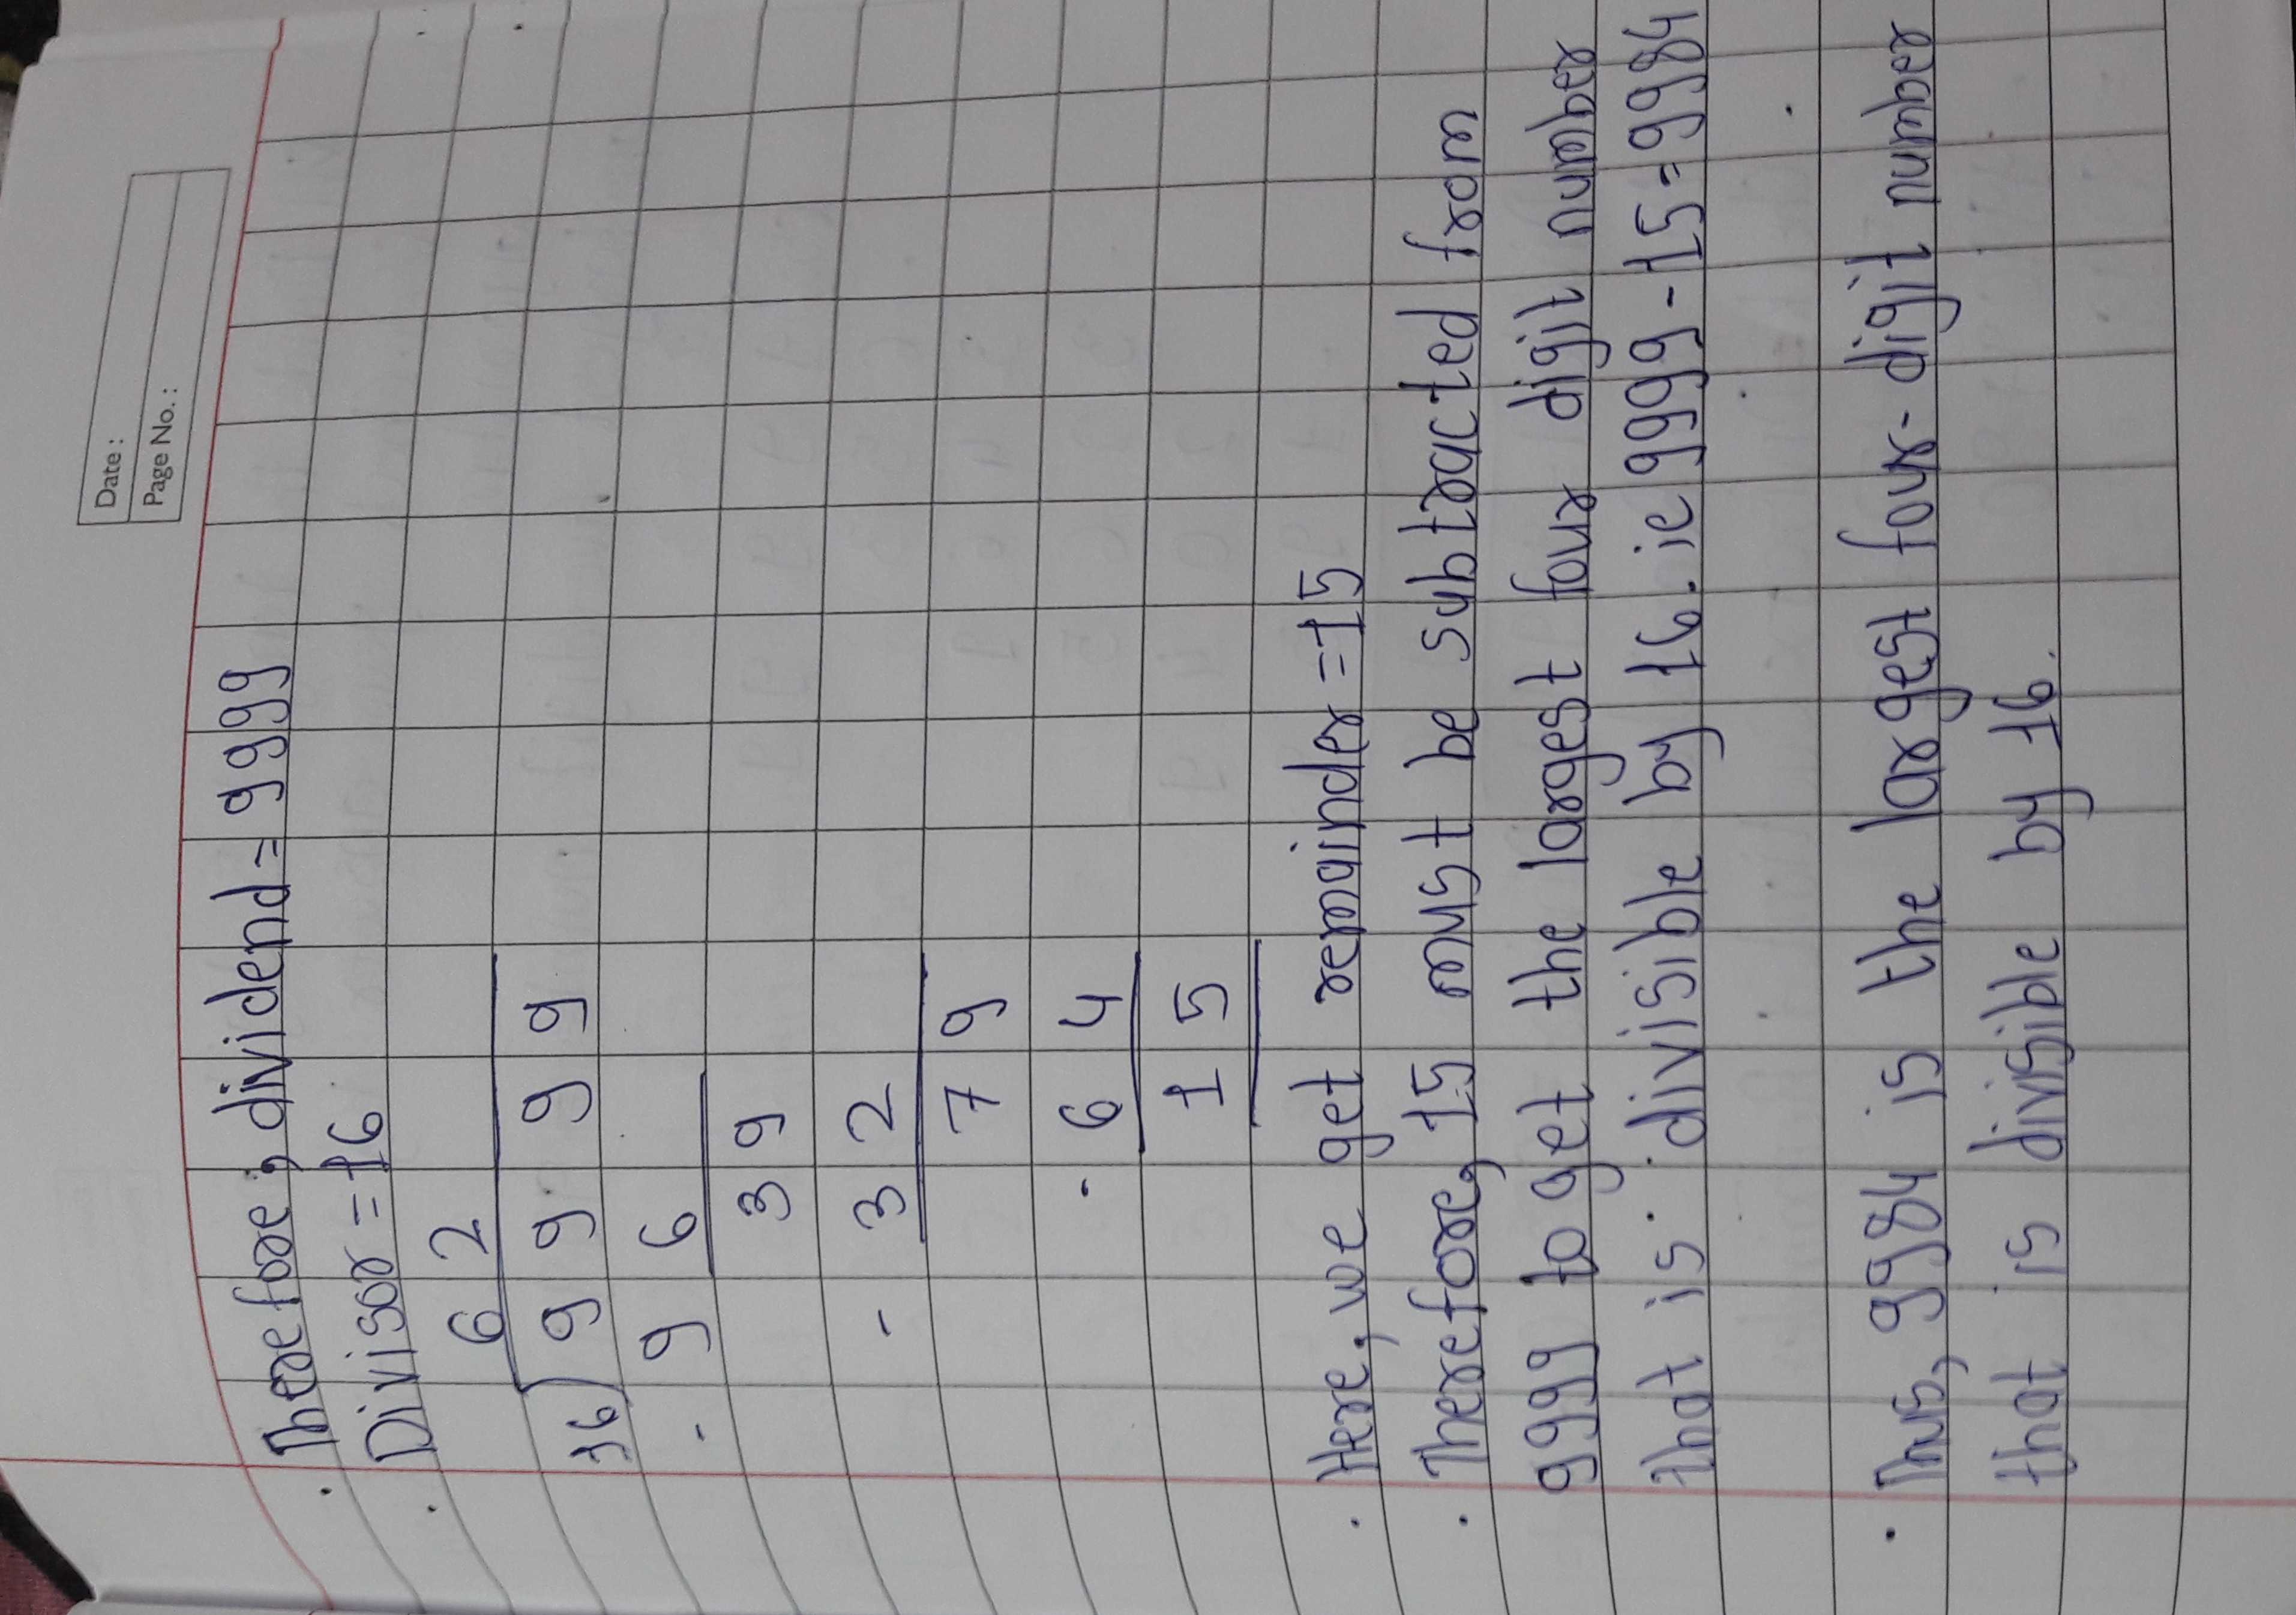 Date :
Page No. :
· Therefore, dividend = 9999
· Divisor = 16
6 2
16) 9 9 9 9
- 9 6
3 9
- 3 2
7 9
- 6 4
1 5
· Here, we get remainder = 15
· Therefore, 15 must be subtracted from
9999 to get the largest four digit number
that is divisible by 16. ie 9999 - 15 = 9984
· Thus, 9984 is the largest four-digit number
that is divisible by 16.